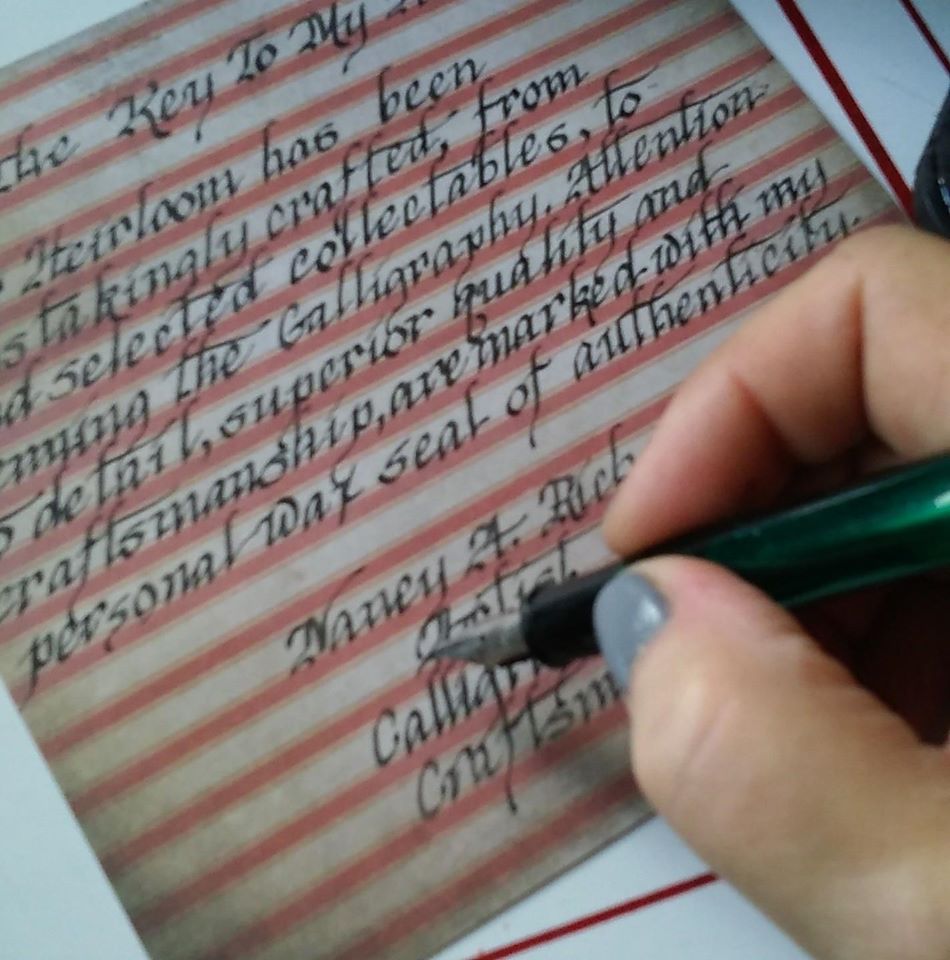 The Key To My
Heirloom has been
stakingly crafted, from
d selected collectables, to
ming the Calligraphy. Attention
detail, superior quality and
craftsmanship, are marked with my
personal wax seal of authenticity.
Nancy A. Rich
Artist
Callig
Craftsm